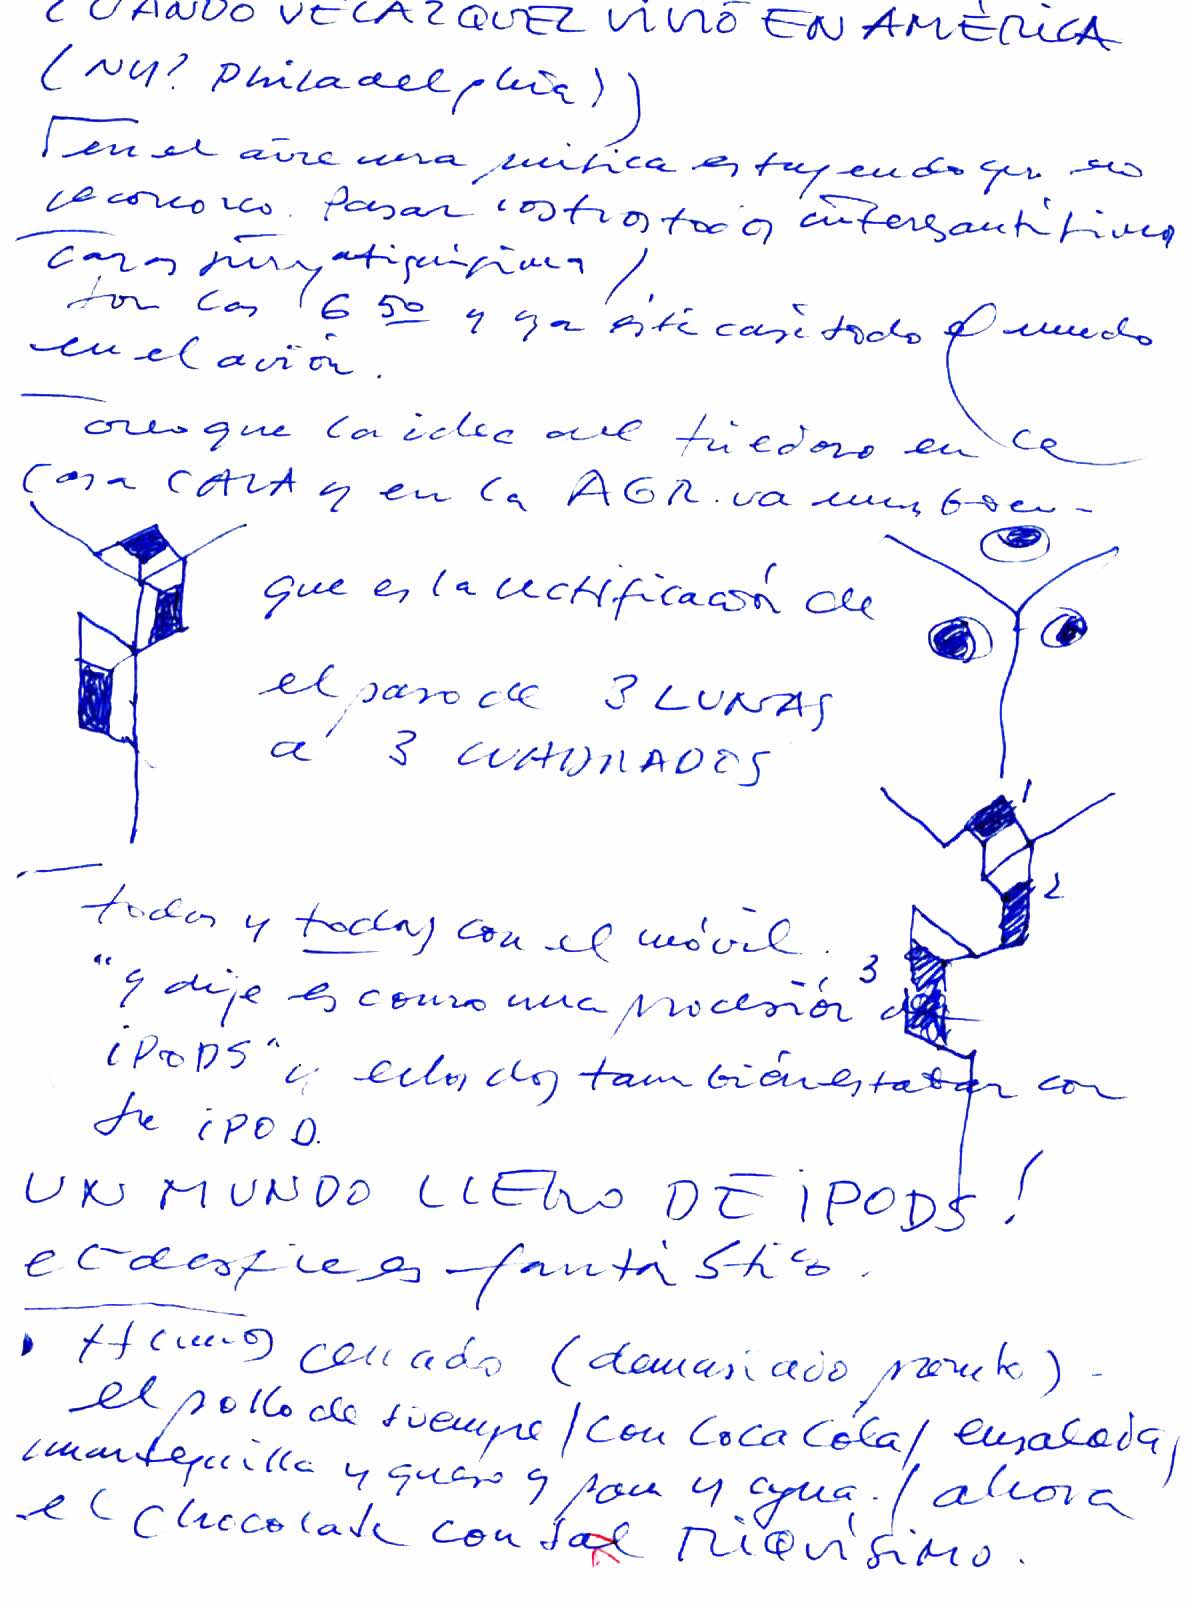 CUANDO VELAZQUEZ VIVIÓ EN AMÉRICA
(NY? Philadelphia))
en el aire una música estupenda que no
reconozco. Pasan rostros todos interesantísimos
caras
son las 6 50 y ya está casi todo el mundo
en el avión.
creo que la idea del triedro en la
casa CALA y en la AGR. va muy bien-
que es la rectificación de
el paso de 3 LUNAS
a 3 CUADRADOS
1
2
3
todos y todas con el móvil.
"y dije es como una procesión de
iPODS" y ellos dos también estaban con
su iPOD.
UN MUNDO LLENO DE iPODS!
el desfile es fantástico.
Hemos cenado (demasiado pronto) -
el pollo de siempre / con coca cola / ensalada,
mantequilla y queso y pan y agua. / ahora
el chocolate con sal RIQUÍSIMO.